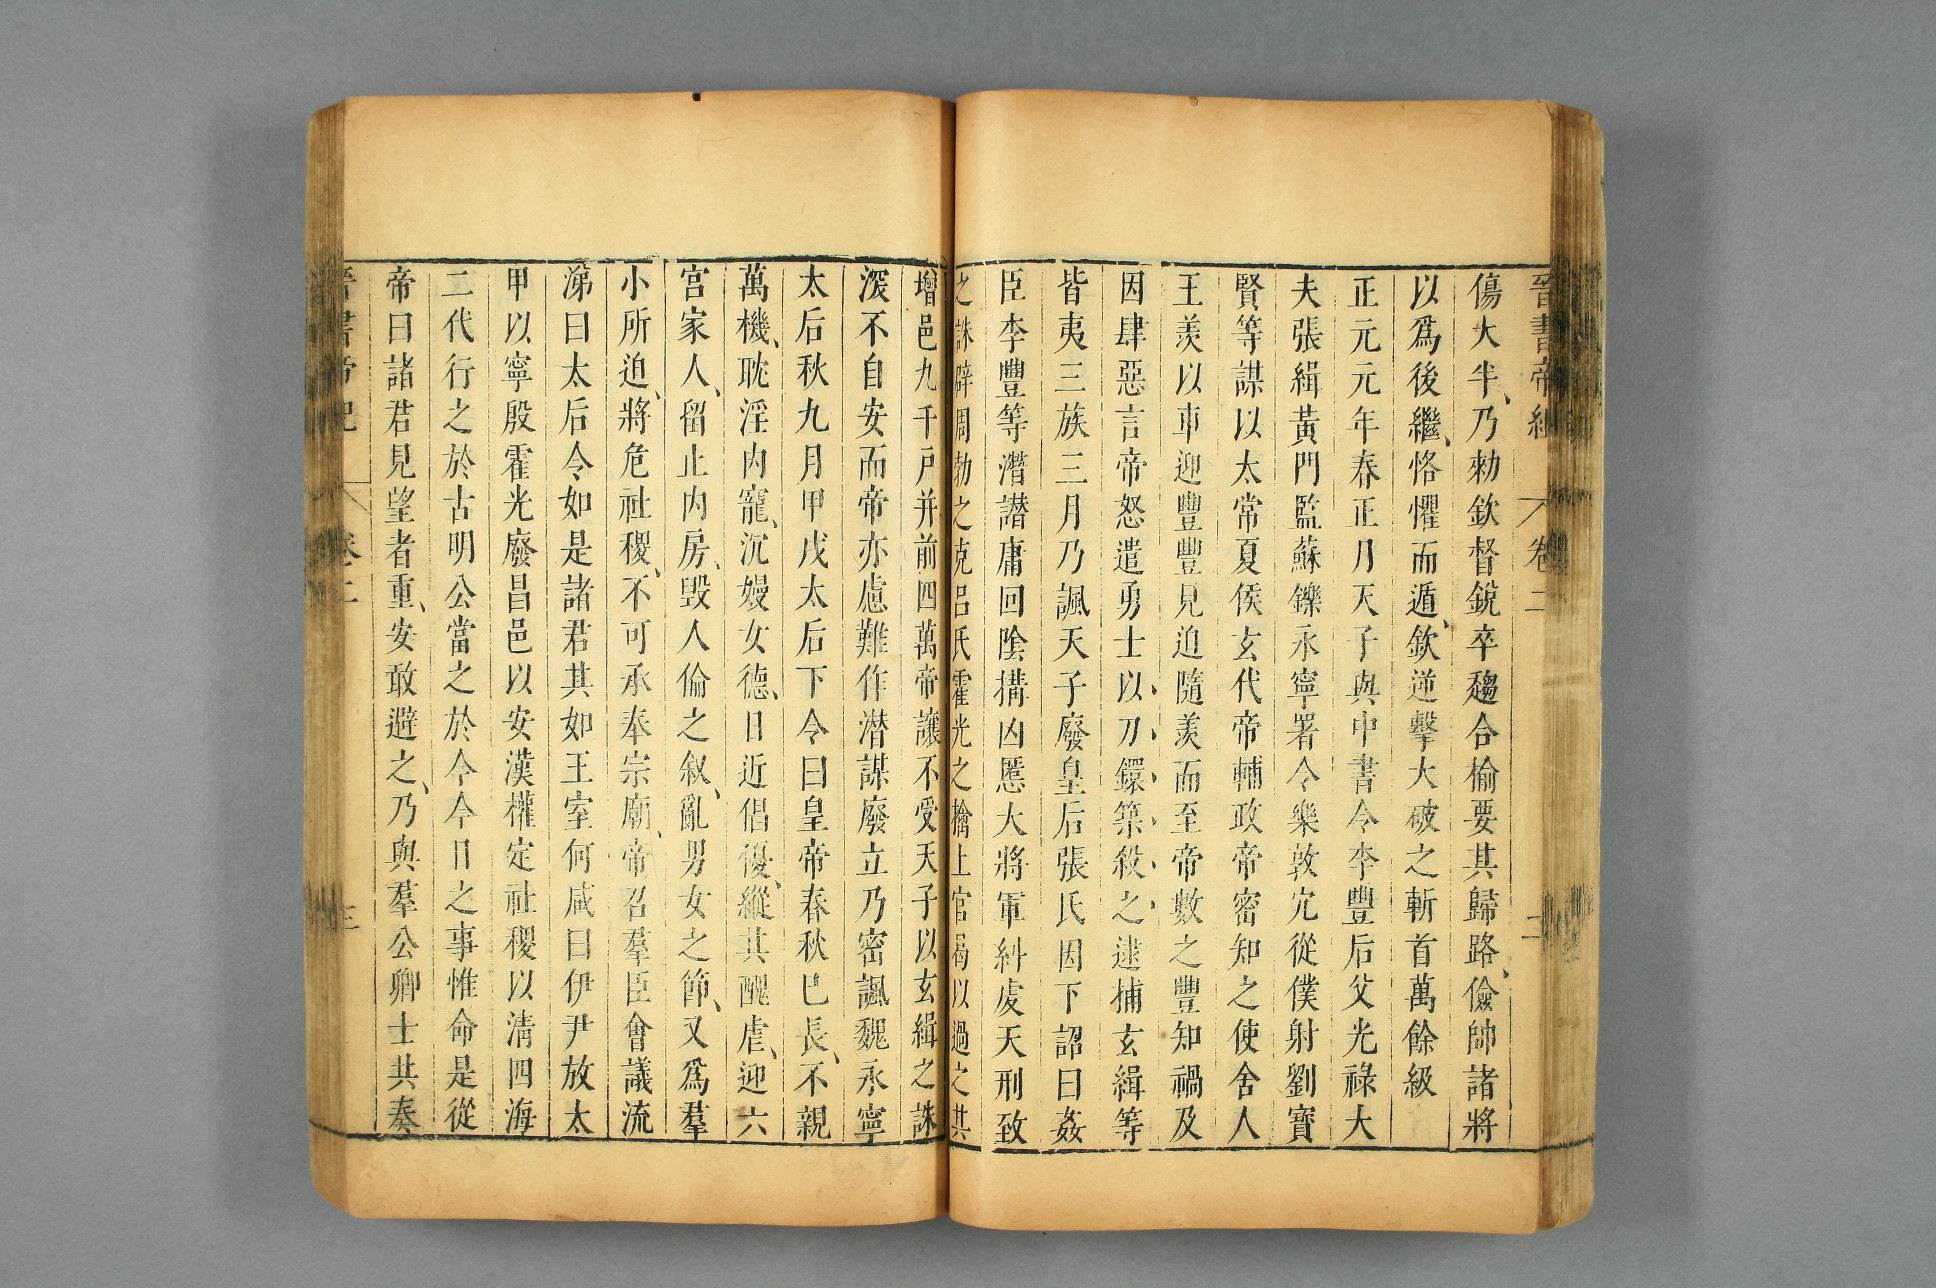 晉書帝紀 卷二 二
傷大半、乃勑欽督銳卒趨合榆要其歸路、儉帥諸將
以爲後繼、恪懼而遁、欽逆擊大破之斬首萬餘級
正元元年春正月天子與中書令李豐后父光祿大
夫張緝黃門監蘇鑠永寧署令樂敦宂從僕射劉寶
賢等謀以太常夏侯玄代帝輔政帝密知之使舍人
王羨以車迎豐豐見迫隨羨而至帝數之豐知禍及
因肆惡言帝怒遣勇士以刀鐶築殺之逮捕玄緝等
皆夷三族三月乃諷天子廢皇后張氏因下詔曰姦
臣李豐等潛譖庸回陰搆凶慝大將軍糾虔天刑致
之誅辟周勃之克呂氏霍光之擒上官曷以過之其
增邑九千戶并前四萬帝讓不受天子以玄緝之誅
深不自安而帝亦慮難作潜謀廢立乃密諷魏永寧
太后秋九月甲戌太后下令曰皇帝春秋已長、不親
萬機、耽淫內寵、沉嫚女德、日近倡優、縱其醜虐、迎六
宮家人、留止內房、毀人倫之叙、亂男女之節、又爲羣
小所迫、將危社稷、不可承奉宗廟、帝召羣臣會議流
涕曰太后令如是諸君其如王室何咸曰伊尹放太
甲以寧殷霍光廢昌邑以安漢權定社稷以清四海
二代行之於古明公當之於今今日之事惟命是從
帝曰諸君見望者重、安敢避之、乃與羣公卿士共奏
晉書帝紀 卷二 三